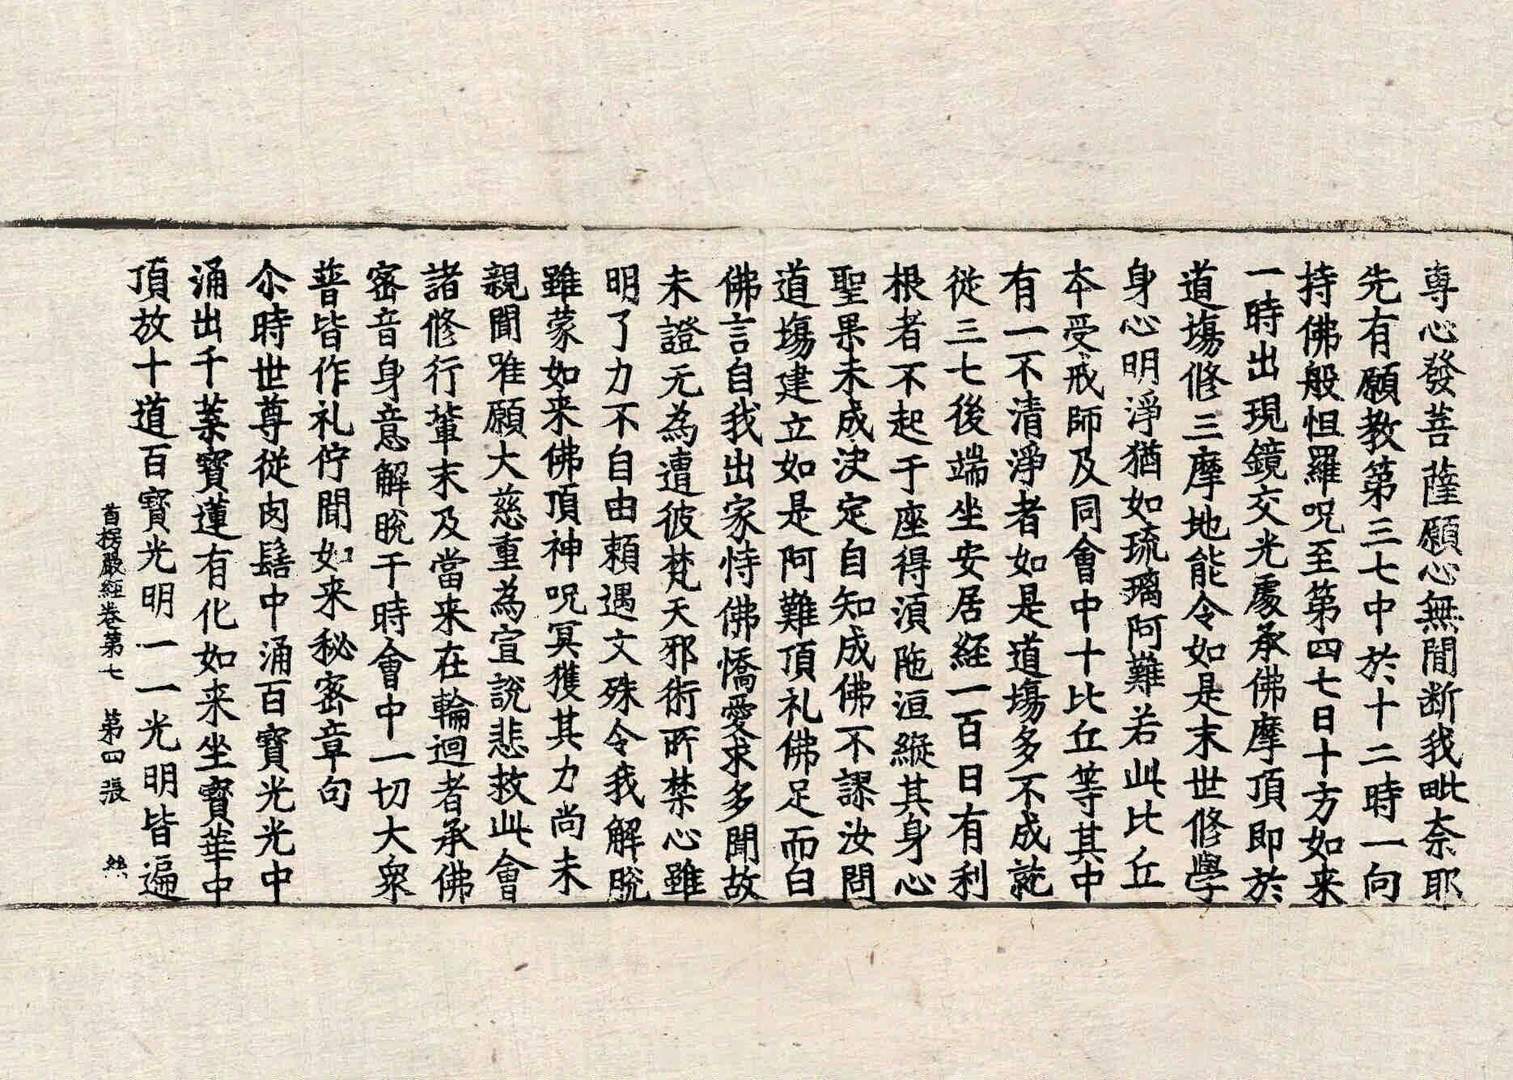 專心發菩薩願心無間断我毗奈耶
先有願教第三七中於十二時一向
持佛般怛羅呪至第四七日十方如来
一時出現鏡交光處承佛摩頂即於
道塲修三摩地能令如是末世修學
身心明淨猶如琉璃阿難若此比丘
本受戒師及同會中十比丘等其中
有一不清淨者如是道塲多不成就
従三七後端坐安居経一百日有利
根者不起于座得湏陁洹縱其身心
聖果未成决定自知成佛不謬汝問
道塲建立如是阿難頂礼佛足而白
佛言自我出家恃佛憍愛求多聞故
未證无為遭彼梵天邪術所禁心雖
明了力不自由頼遇文殊令我解脫
雖蒙如来佛頂神呪冥獲其力尚未
親聞唯願大慈重為宣說悲救此會
諸修行軰末及當来在輪迴者承佛
宻音身意解脫于時會中一切大衆
普皆作礼佇聞如来秘宻章句
尒時世尊従肉髻中涌百寳光光中
涌出千葉寳蓮有化如来坐寳華中
頂放十道百寳光明一一光明皆遍
首楞嚴經卷第七 第四張